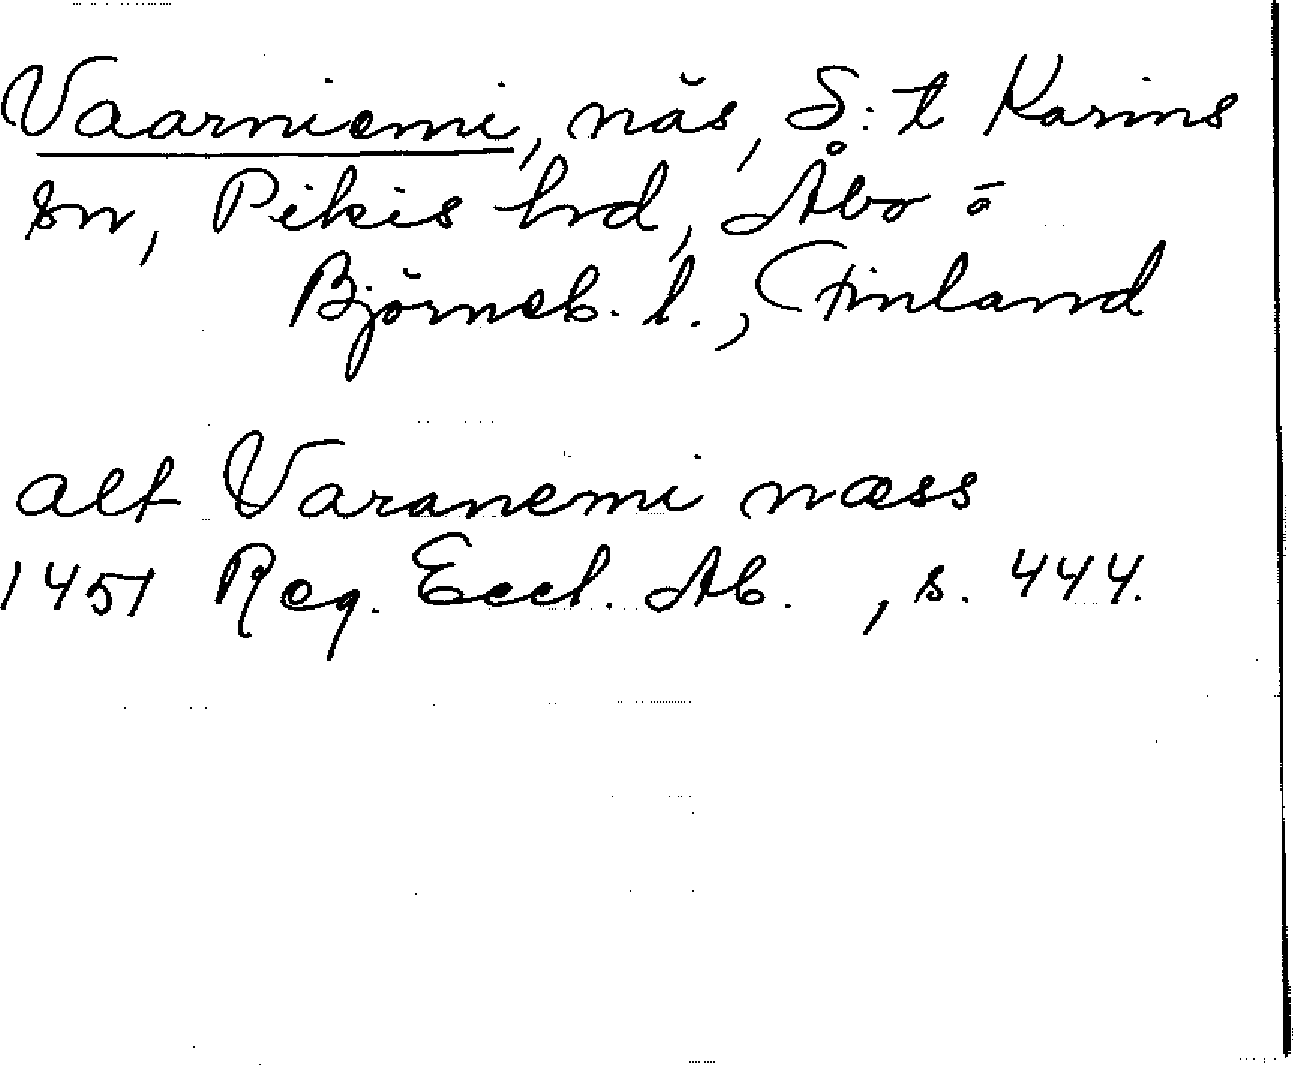 Vaarniemi, näs, S:t Karins
sn, Pikis hrd, Åbo o
Björneb. l., Finland
alf Varanemi næss
1451 Reg. Eccl. Ab., s. 444.